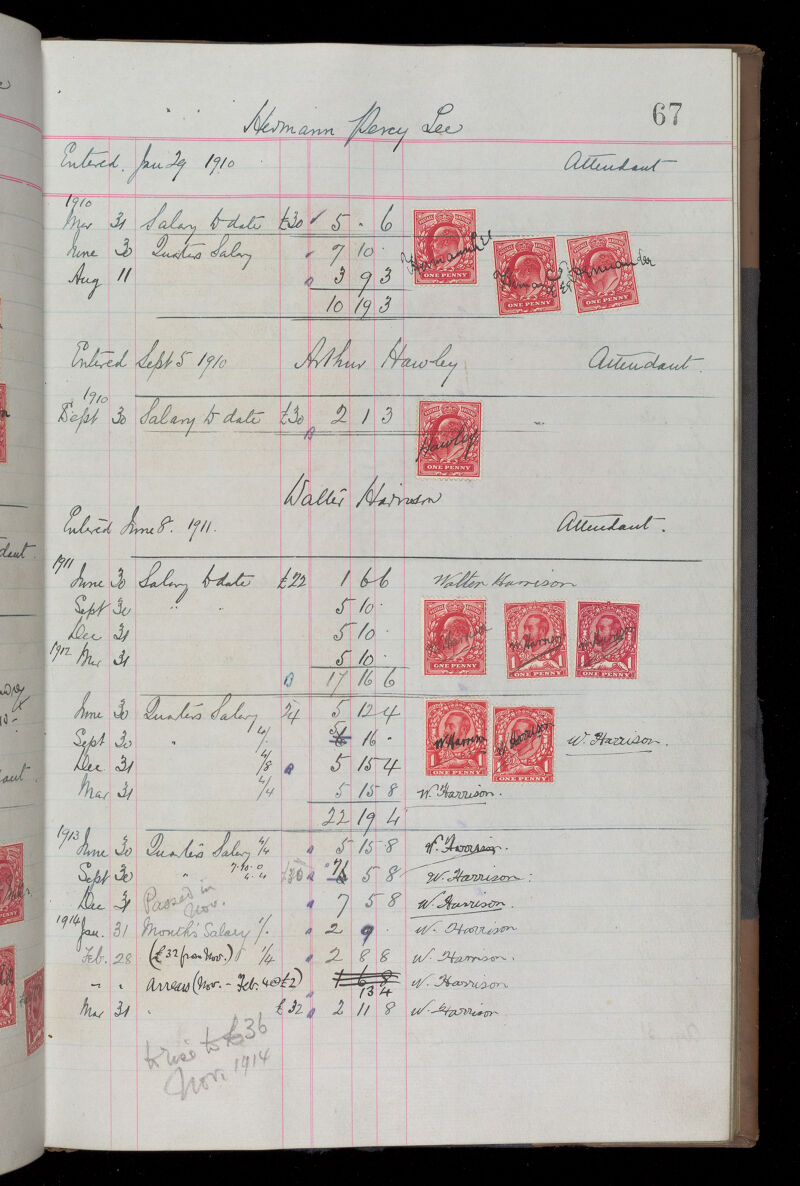 67
Hermann Percy Lee
Entered. Jan 29 1910 Attendant
1910
Mar 31 Salary to date £30 5 - 6
June 30 Quarters Salary 7 10 -
Aug 11 3 9 3
10 19 3
POSTAGE REVENUE
ONE PENNY
ONE PENNY
ONE PENNY
Entered Sept 5 1910 Arthur Hawley Attendant.
1910
Sept 30 Salary to date £30 2 1 3
Hawley
ONE PENNY
Walter Harrison
Entered June 8. 1911. Attendant.
1911
June 30 Salary to date £22 1 6 6 Walton Harrison
Sept 30 " " 5 10 -
Dec 31 5 10 -
1912 Mar 31 5 10 -
W. Harrison W. Harrison W. Harrison
ONE PENNY 1 ONE PENNY 1 1 ONE PENNY 1
17 16 6
June 30 Quarters Salary 24 5 12 4 W Harrison
Sept 30 " 4/ 5 16 - W. Harrison W. Harrison.
1 ONE PENNY 1 1 ONE PENNY 1
Dec 31 4/8 5 15 4
Mar 31 4/4 5 15 8 W. Harrison.
22 19 4
1913
June 30 Quarters Salary 4/4 5 15 8 W. Harrison.
Sept 30 " 7.10.0 4.4 £30 7 5 8 W. Harrison:
Dec 31 Passed in Nov. 7 5 8 W. Harrison.
1914
Jan. 31 Month's Salary 1/. 2 9 . W. Harrison
Feb. 28 (£32 from Nov.) 1/4 2 8 8 W. Harrison.
" " Arrears (Nov. - Feb. 4 @ £2) 1 6 8 W. Harrison
13 4
Mar 31 " £32 2 11 8 W. Harrison.
to rise to £36
Nov. 1914